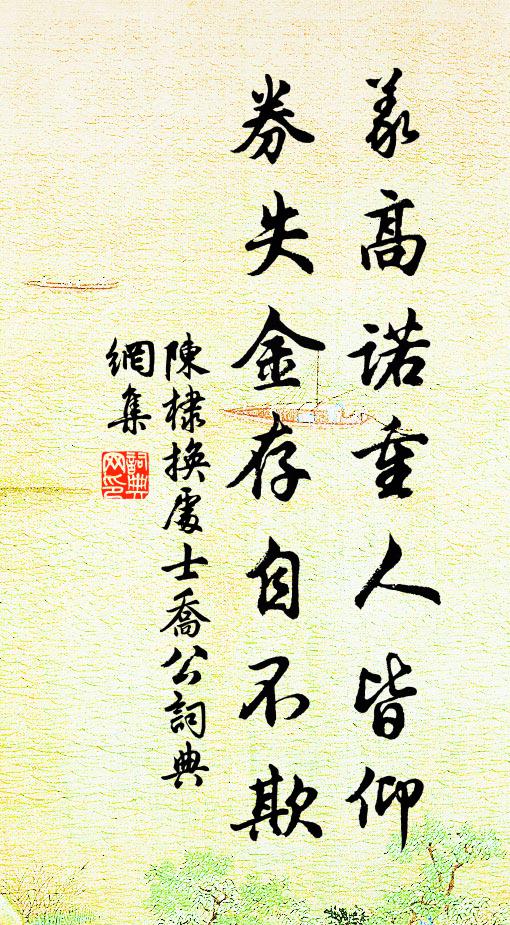 義高諾重人皆仰
券失金存自不欺
陳棣換處士喬公詞典
網集
詞典網印